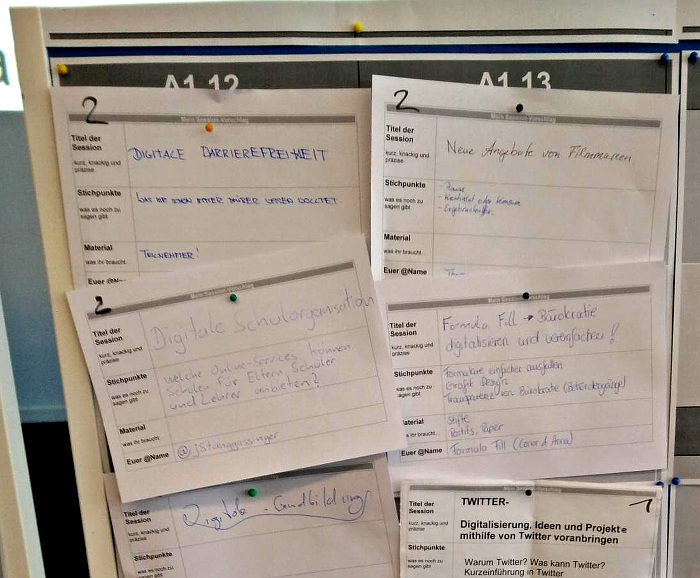 A1.12
A1.13
2
Mein Session-Vorschlag
Titel der Session
kurz, knackig und präzise
DIGITALE BARRIEREFREIHEIT
Stichpunkte
was es noch zu sagen gibt
WAS IHR SCHON IMMER DARÜBER WISSEN WOLLTET
Material
was ihr braucht.
TEILNEHMER!
Euer @Name
2
Mein Session-Vorschlag
Titel der Session
kurz, knackig und präzise
Neue Angebote von Filmmachen
Stichpunkte
was es noch zu sagen gibt
Material
was ihr braucht.
Euer @Name
2
Mein Session-Vorschlag
Titel der Session
kurz, knackig und präzise
Digitale Schulorganisation
Stichpunkte
was es noch zu sagen gibt
Welche Online-Services können
Schulen für Eltern, Schüler
und Lehrer anbieten?
Material
was ihr braucht.
Euer @Name
@jstanggassinger
Mein Session-Vorschlag
Titel der Session
kurz, knackig und präzise
Formula Fill → Bürokratie
digitalisieren und vereinfachen!
Stichpunkte
was es noch zu sagen gibt
Formulare einfacher ausfüllen
Grafik Design
Transparenz von Bürokratie (Behördengänge)
Material
was ihr braucht.
Stifte
Euer @Name
Formula Fill
Titel der Session
kurz, knackig und präzise
Digitale
Stichpunkte
was es noch zu sagen gibt
1
Titel der Session
kurz, knackig und präzise
TWITTER-
Digitalisierung, Ideen und Projekte
mithilfe von Twitter voranbringen
Stichpunkte
was es noch zu sagen gibt
Warum Twitter? Was kann Twitter?
Kurzeinführung in Twitter